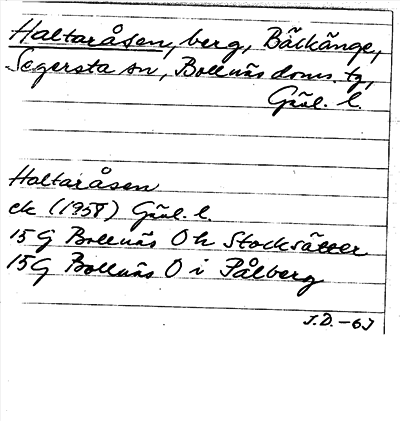 Haltaråsen, berg, Bäckänge,
Segersta sn, Bollnäs doms. tg,
Gävl. l.
Haltaråsen
ek (1958) Gävl. l.
15G Bollnäs O h Stocksätter
15G Bollnäs O i Pålberg
J.D. -67